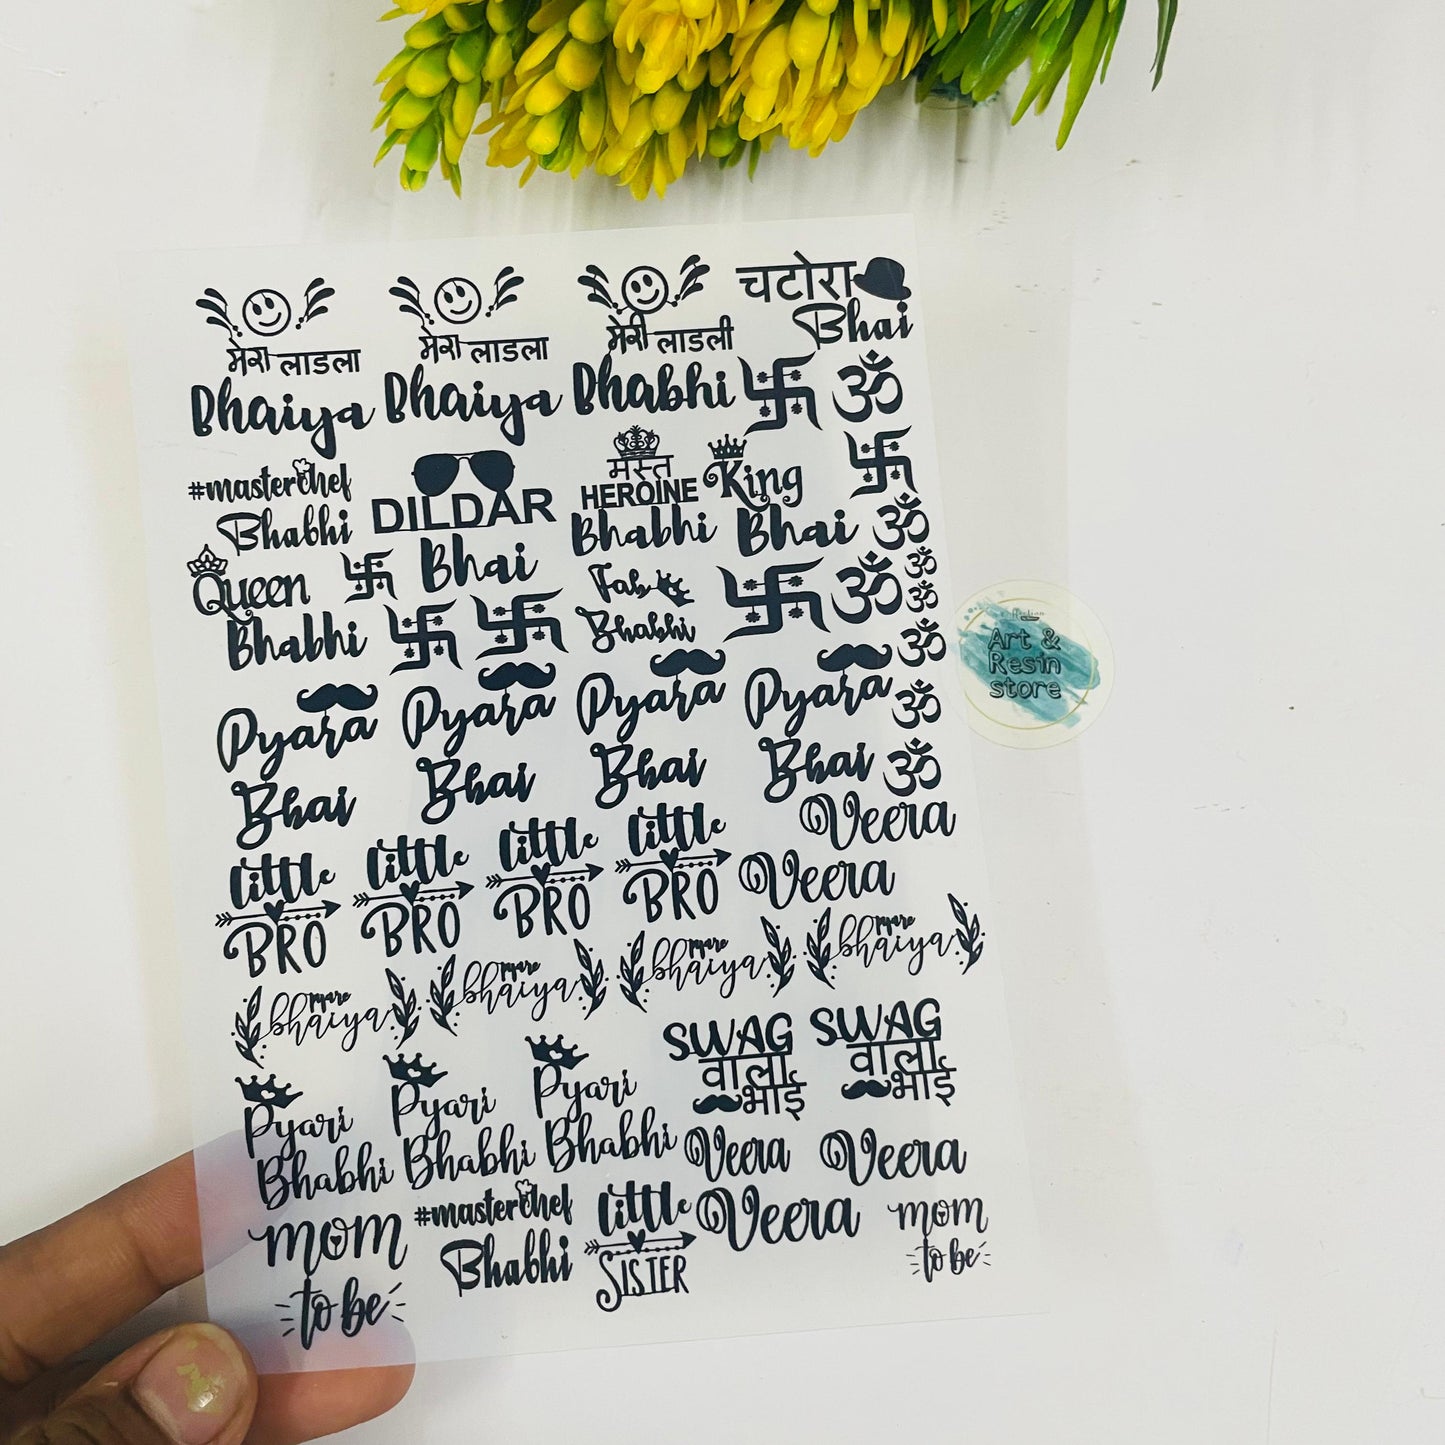 मेरा लाडला
Bhaiya
मेरा लाडला
Bhaiya
मेरी लाडली
Bhabhi
चटोरा
Bhai
ॐ
#masterchef
Bhabhi
DILDAR
Bhai
मस्त
HEROINE
Bhabhi
King
Bhai
ॐ
Queen
Bhabhi
Fab
Bhabhi
ॐ
ॐ
ॐ
ॐ
ॐ
ॐ
Pyara
Bhai
Pyara
Bhai
Pyara
Bhai
Pyara
Bhai
little
BRO
little
BRO
little
BRO
little
BRO
Veera
Veera
pyare
bhaiya
pyare
bhaiya
pyare
bhaiya
pyare
bhaiya
Pyari
Bhabhi
Pyari
Bhabhi
Pyari
Bhabhi
SWAG
वाला
भाई
SWAG
वाला
भाई
Veera
Veera
mom
to be
#masterchef
Bhabhi
little
SISTER
Veera
mom
to be
Art &
Resin
store